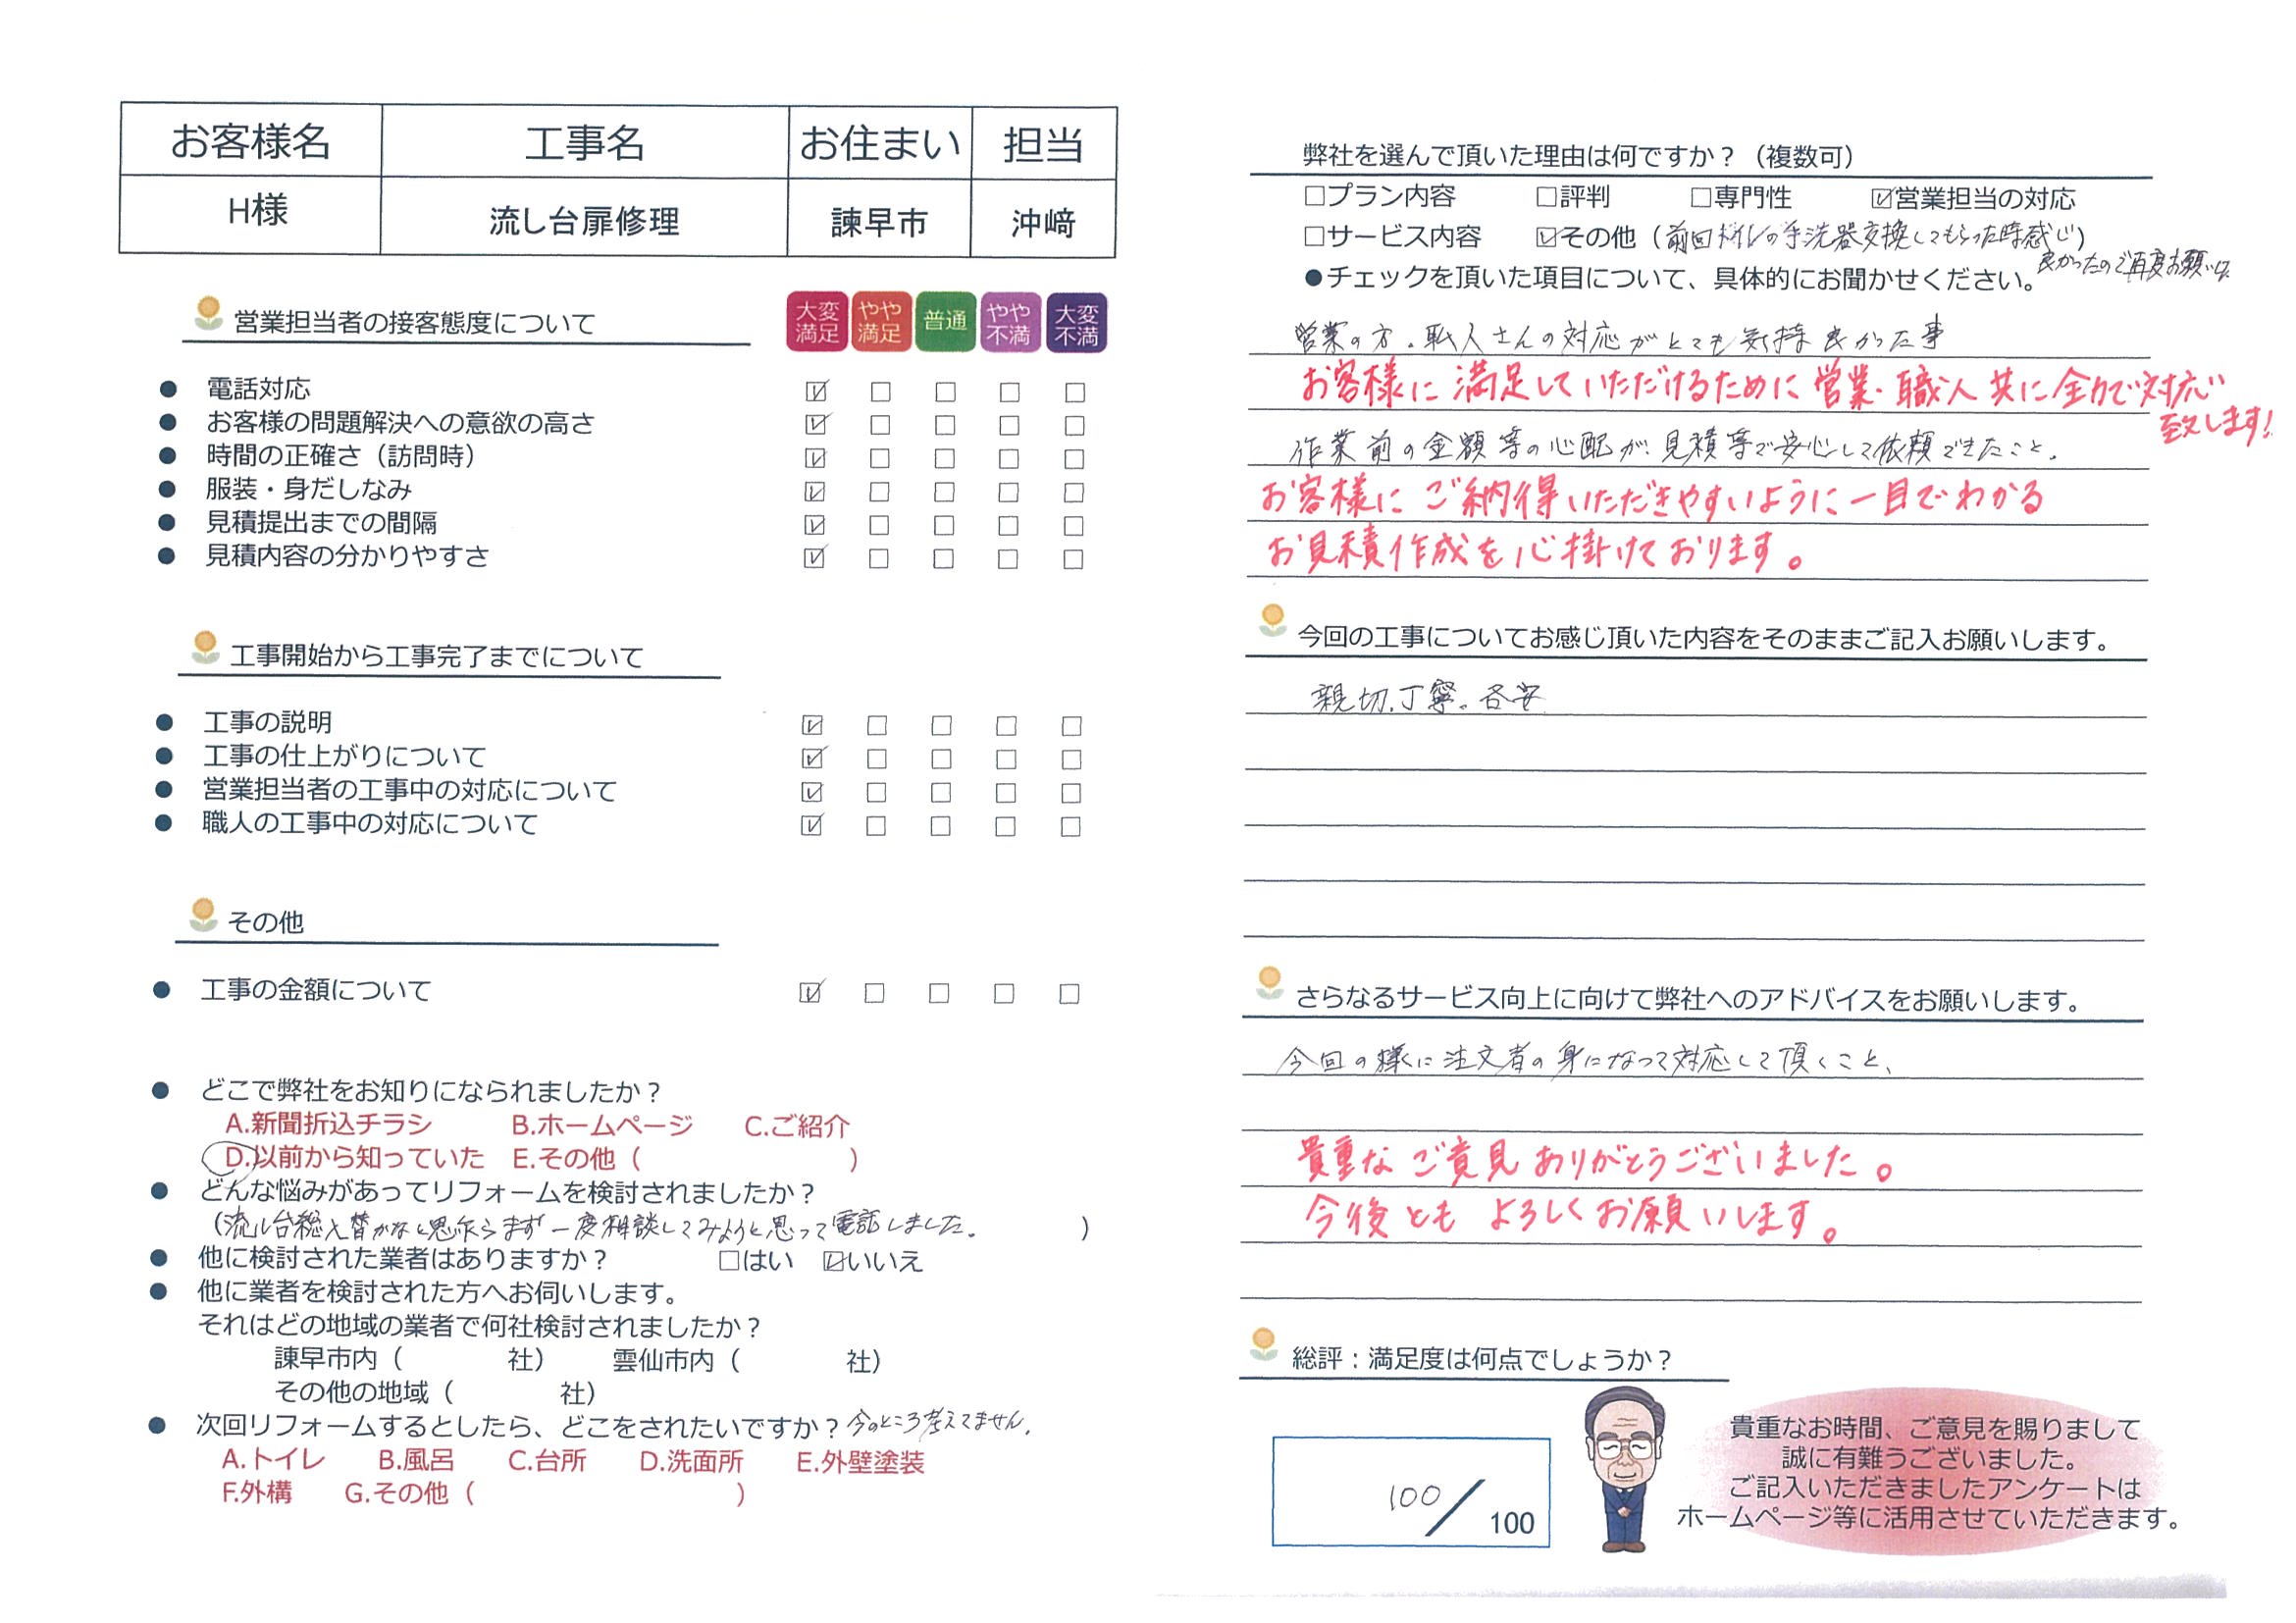 お客様名 工事名 お住まい 担当
H様 流し台扉修理 諫早市 沖﨑
営業担当者の接客態度について
大変満足 やや満足 普通 やや不満 大変不満
● 電話対応 ☑ □ □ □ □
● お客様の問題解決への意欲の高さ ☑ □ □ □ □
● 時間の正確さ（訪問時） ☑ □ □ □ □
● 服装・身だしなみ ☑ □ □ □ □
● 見積提出までの間隔 ☑ □ □ □ □
● 見積内容の分かりやすさ ☑ □ □ □ □
工事開始から工事完了までについて
● 工事の説明 ☑ □ □ □ □
● 工事の仕上がりについて ☑ □ □ □ □
● 営業担当者の工事中の対応について ☑ □ □ □ □
● 職人の工事中の対応について ☑ □ □ □ □
その他
● 工事の金額について ☑ □ □ □ □
● どこで弊社をお知りになられましたか？
A.新聞折込チラシ B.ホームページ C.ご紹介
D.以前から知っていた E.その他（ ）
● どんな悩みがあってリフォームを検討されましたか？
（流し台総入替かなと思いまず一度相談してみようと思って電話しました。 ）
● 他に検討された業者はありますか？ □はい ☑いいえ
● 他に業者を検討された方へお伺いします。
それはどの地域の業者で何社検討されましたか？
諫早市内（ 社） 雲仙市内（ 社）
その他の地域（ 社）
● 次回リフォームするとしたら、どこをされたいですか？今のところ考えてません.
A.トイレ B.風呂 C.台所 D.洗面所 E.外壁塗装
F.外構 G.その他（ ）
弊社を選んで頂いた理由は何ですか？（複数可）
□プラン内容 □評判 □専門性 ☑営業担当の対応
□サービス内容 ☑その他（前回トイレの手洗器交換してもらった時感じ）
良かったので再度お願い
●チェックを頂いた項目について、具体的にお聞かせください。
営業の方.職人さんの対応がとても気持良かった事
お客様に満足していただけるために営業・職人共に全力で対応
致します!
作業前の金額等の心配が、見積等で安心して依頼できたこと.
お客様にご納得いただきやすいように一目でわかる
お見積作成を心掛けております。
今回の工事についてお感じ頂いた内容をそのままご記入お願いします。
親切.丁寧.
さらなるサービス向上に向けて弊社へのアドバイスをお願いします。
今回の様に注文者の身になって対応して頂くこと、
貴重なご意見ありがとうございました。
今後とも よろしくお願いします。
総評：満足度は何点でしょうか？
100／100
貴重なお時間、ご意見を賜りまして
誠に有難うございました。
ご記入いただきましたアンケートは
ホームページ等に活用させていただきます。